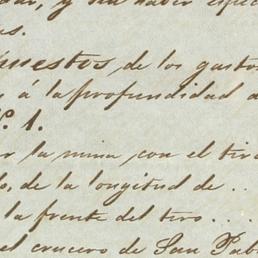 y
us.
uestos de los gastos
y á la profundidad d
º. 1.
r la mina con el tiro
lo, de la longitud de ..
la frente del tiro ....
el crucero de San Pabl